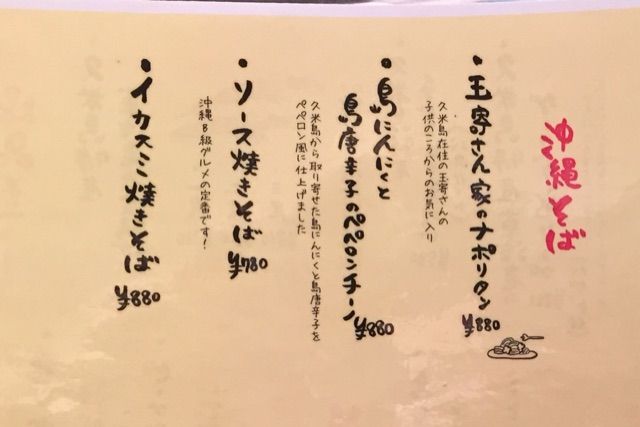 沖縄そば
・玉寄さん家のナポリタン
¥880
久米島在住の玉寄さんの
子供のころからのお気に入り
・島にんにくと
島唐辛子のペペロンチーノ
¥880
久米島から取り寄せた島にんにくと島唐辛子を
ペペロン風に仕上げました
・ソース焼きそば
¥780
沖縄B級グルメの定番です!
・イカスミ焼きそば
¥880